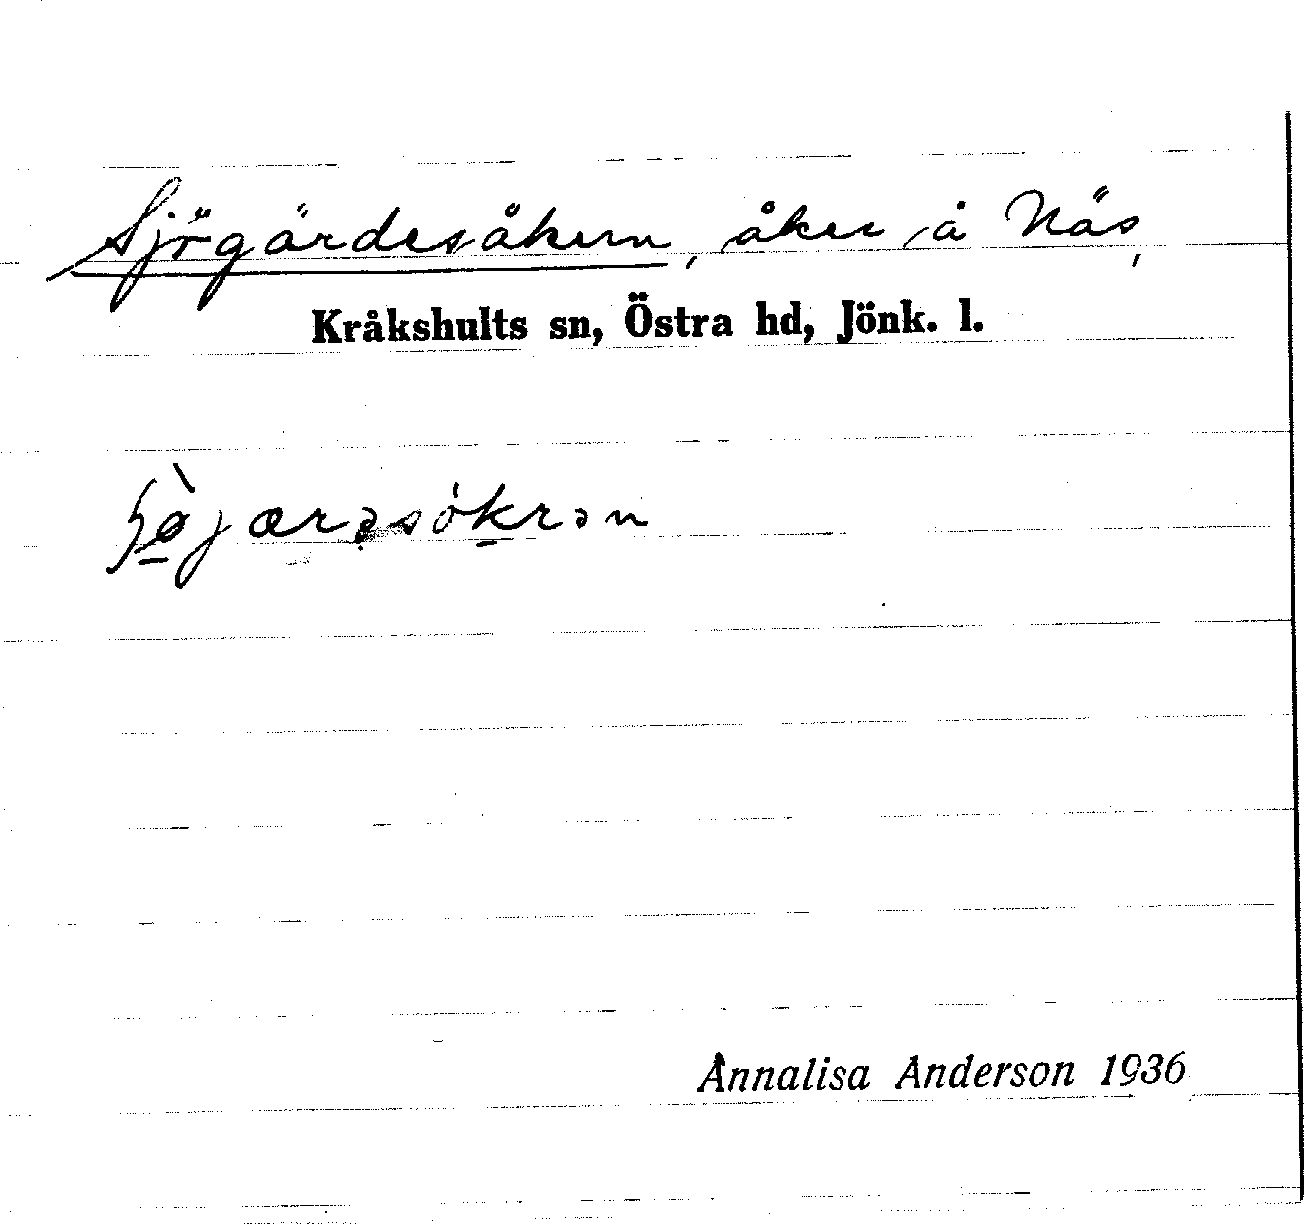 Sjögärdesåkern, åker å Näs,
Kråkshults sn, Östra hd, Jönk. l.
Annalisa Anderson 1936